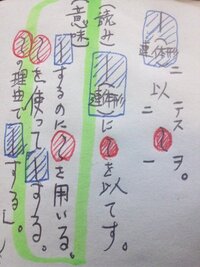 1(連体形)ニ以テス二2ヲ一。
(読み)
1(連体形)に2を以てす。
(意味)
1するのに2を用いる。
2を使って1する。
2の理由で1する」。